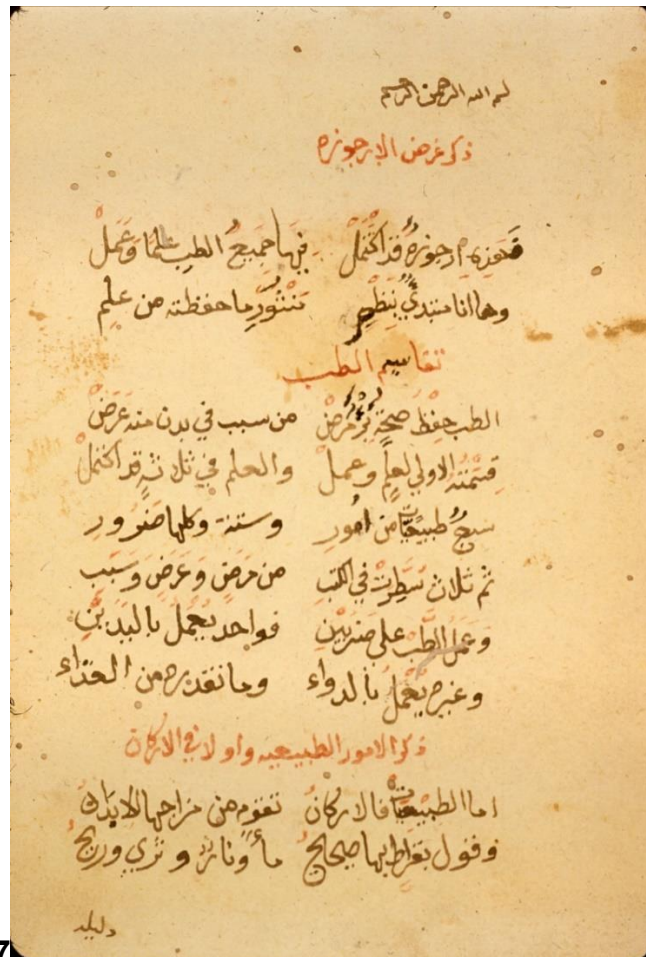 بسم الله الرحمن الرحيم
ذكر غرض الارجوزه
فهذه ارجوزة قد اكتمل فيها جميع الطب علما وعمل
وها انا مبتدي بنظم منثور ما حفظته من علم
تقاسيم الطب
الطب حفظ صحة برء مرض من سبب في بدن منه عرض
قسمته الاولي لعلم وعمل والعلم في ثلاثة قد اكتمل
سبع طبيعيات من امور وستة وكلها ضرور
ثم ثلاث سطرت في الكتب من مرض وعرض وسبب
وعمل الطب علي ضربين فواحد يعمل باليدين
وغيره يعمل بالدواء وما نقدره من الغذاء
ذكر الامور الطبيعيه واولا في الاركان
اما الطبيعيات فالاركان تقوم من مزاجها الابدان
وقول بقراط بها صحيح ماء ونار وثري وريح
دليله
7